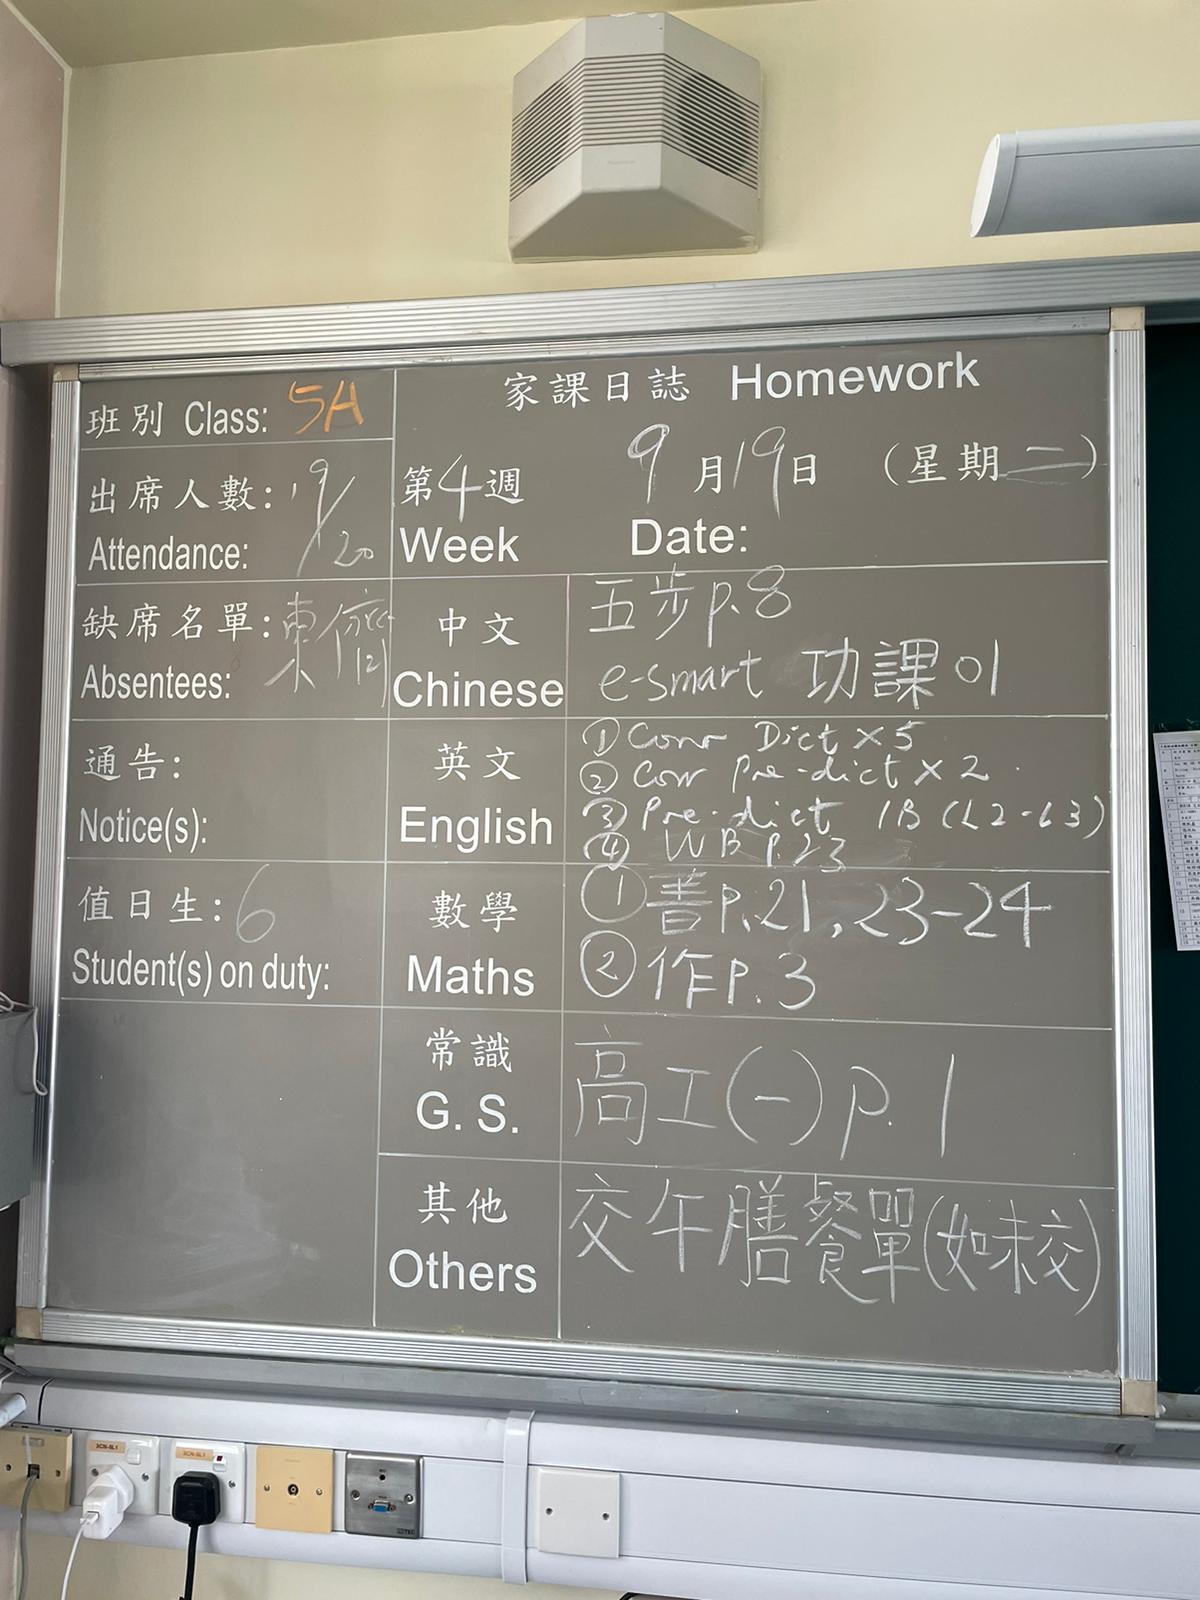 班別 Class: 5A
出席人數: 19/20
Attendance:
缺席名單:
Absentees:
通告:
Notice(s):
值日生: 6
Student(s) on duty:
家課日誌 Homework
第4週 9月19日 (星期二)
Week Date:
中文
Chinese
五步p.8
e-smart 功課01
英文
English
① Corr Dict x 5
② Corr pre-dict x 2
③ Pre-dict 1B (L2-L3)
④ WB p.23
數學
Maths
① 書P.21,23-24
② 作P.3
常識
G. S.
高工(一) p.1
其他
Others
交午膳餐單(如未交)